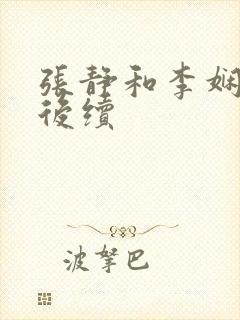 張靜和李娴
後續
波拏巴